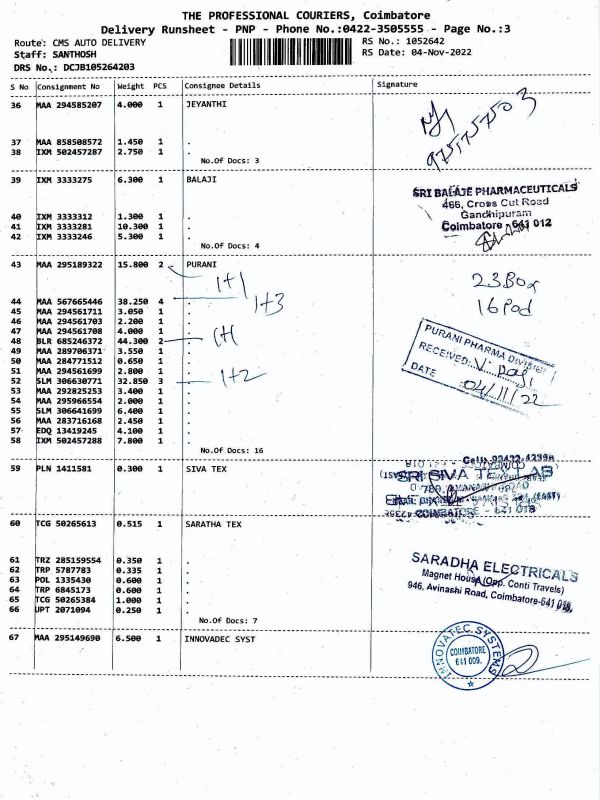 THE PROFESSIONAL COURIERS, Coimbatore
Delivery Runsheet - PNP - Phone No.:0422-3505555 - Page No.:3
Route: CMS AUTO DELIVERY
RS No.: 1052642
Staff: SANTHOSH
RS Date: 04-Nov-2022
DRS No.: DCJB105264203
S No Consignment No Weight PCS Consignee Details Signature
36 MAA 294585207 4.000 1 JEYANTHI
37 MAA 858508572 1.450 1 .
38 IXM 502457287 2.750 1 .
No.Of Docs: 3
39 IXM 3333275 6.300 1 BALAJI
SRI BALAJE PHARMACEUTICALS
466, Cross Cut Road
Gandhipuram
Coimbatore - 641 012
40 IXM 3333312 1.300 1 .
41 IXM 3333281 10.300 1 .
42 IXM 3333246 5.300 1 .
No.Of Docs: 4
43 MAA 295189322 15.800 2 PURANI
1+1
23 Box
16 Pod
44 MAA 567665446 38.250 4 .
1+3
45 MAA 294561711 3.050 1 .
46 MAA 294561703 2.200 1 .
47 MAA 294561708 4.000 1 .
48 BLR 685246372 44.300 2 .
1+1
49 MAA 289706371 3.550 1 .
50 MAA 284771512 0.650 1 .
51 MAA 294561699 2.800 1 .
52 SLM 306630771 32.850 3 .
1+2
53 MAA 292825253 3.400 1 .
54 MAA 295966554 2.000 1 .
55 SLM 306641699 6.400 1 .
56 MAA 283716168 2.450 1 .
57 EDQ 13419245 4.100 1 .
58 IXM 502457288 7.800 1 .
No.Of Docs: 16
PURANI PHARMA
RECEIVED
DATE 04/11/22
59 PLN 1411581 0.300 1 SIVA TEX
SRI SIVA TEX LAB
COIMBATORE - 641 018
60 TCG 50265613 0.515 1 SARATHA TEX
61 TRZ 285159554 0.350 1 .
62 TRP 5787783 0.335 1 .
63 POL 1335430 0.600 1 .
64 TRP 6845173 0.600 1 .
65 TCG 50265384 1.000 1 .
66 UPT 2071094 0.250 1 .
No.Of Docs: 7
SARADHA ELECTRICALS
Magnet House (Opp. Conti Travels)
946, Avinashi Road, Coimbatore-641 018.
67 MAA 295149690 6.500 1 INNOVADEC SYST
INNOVATEC SYSTEMS
COIMBATORE
641 009.